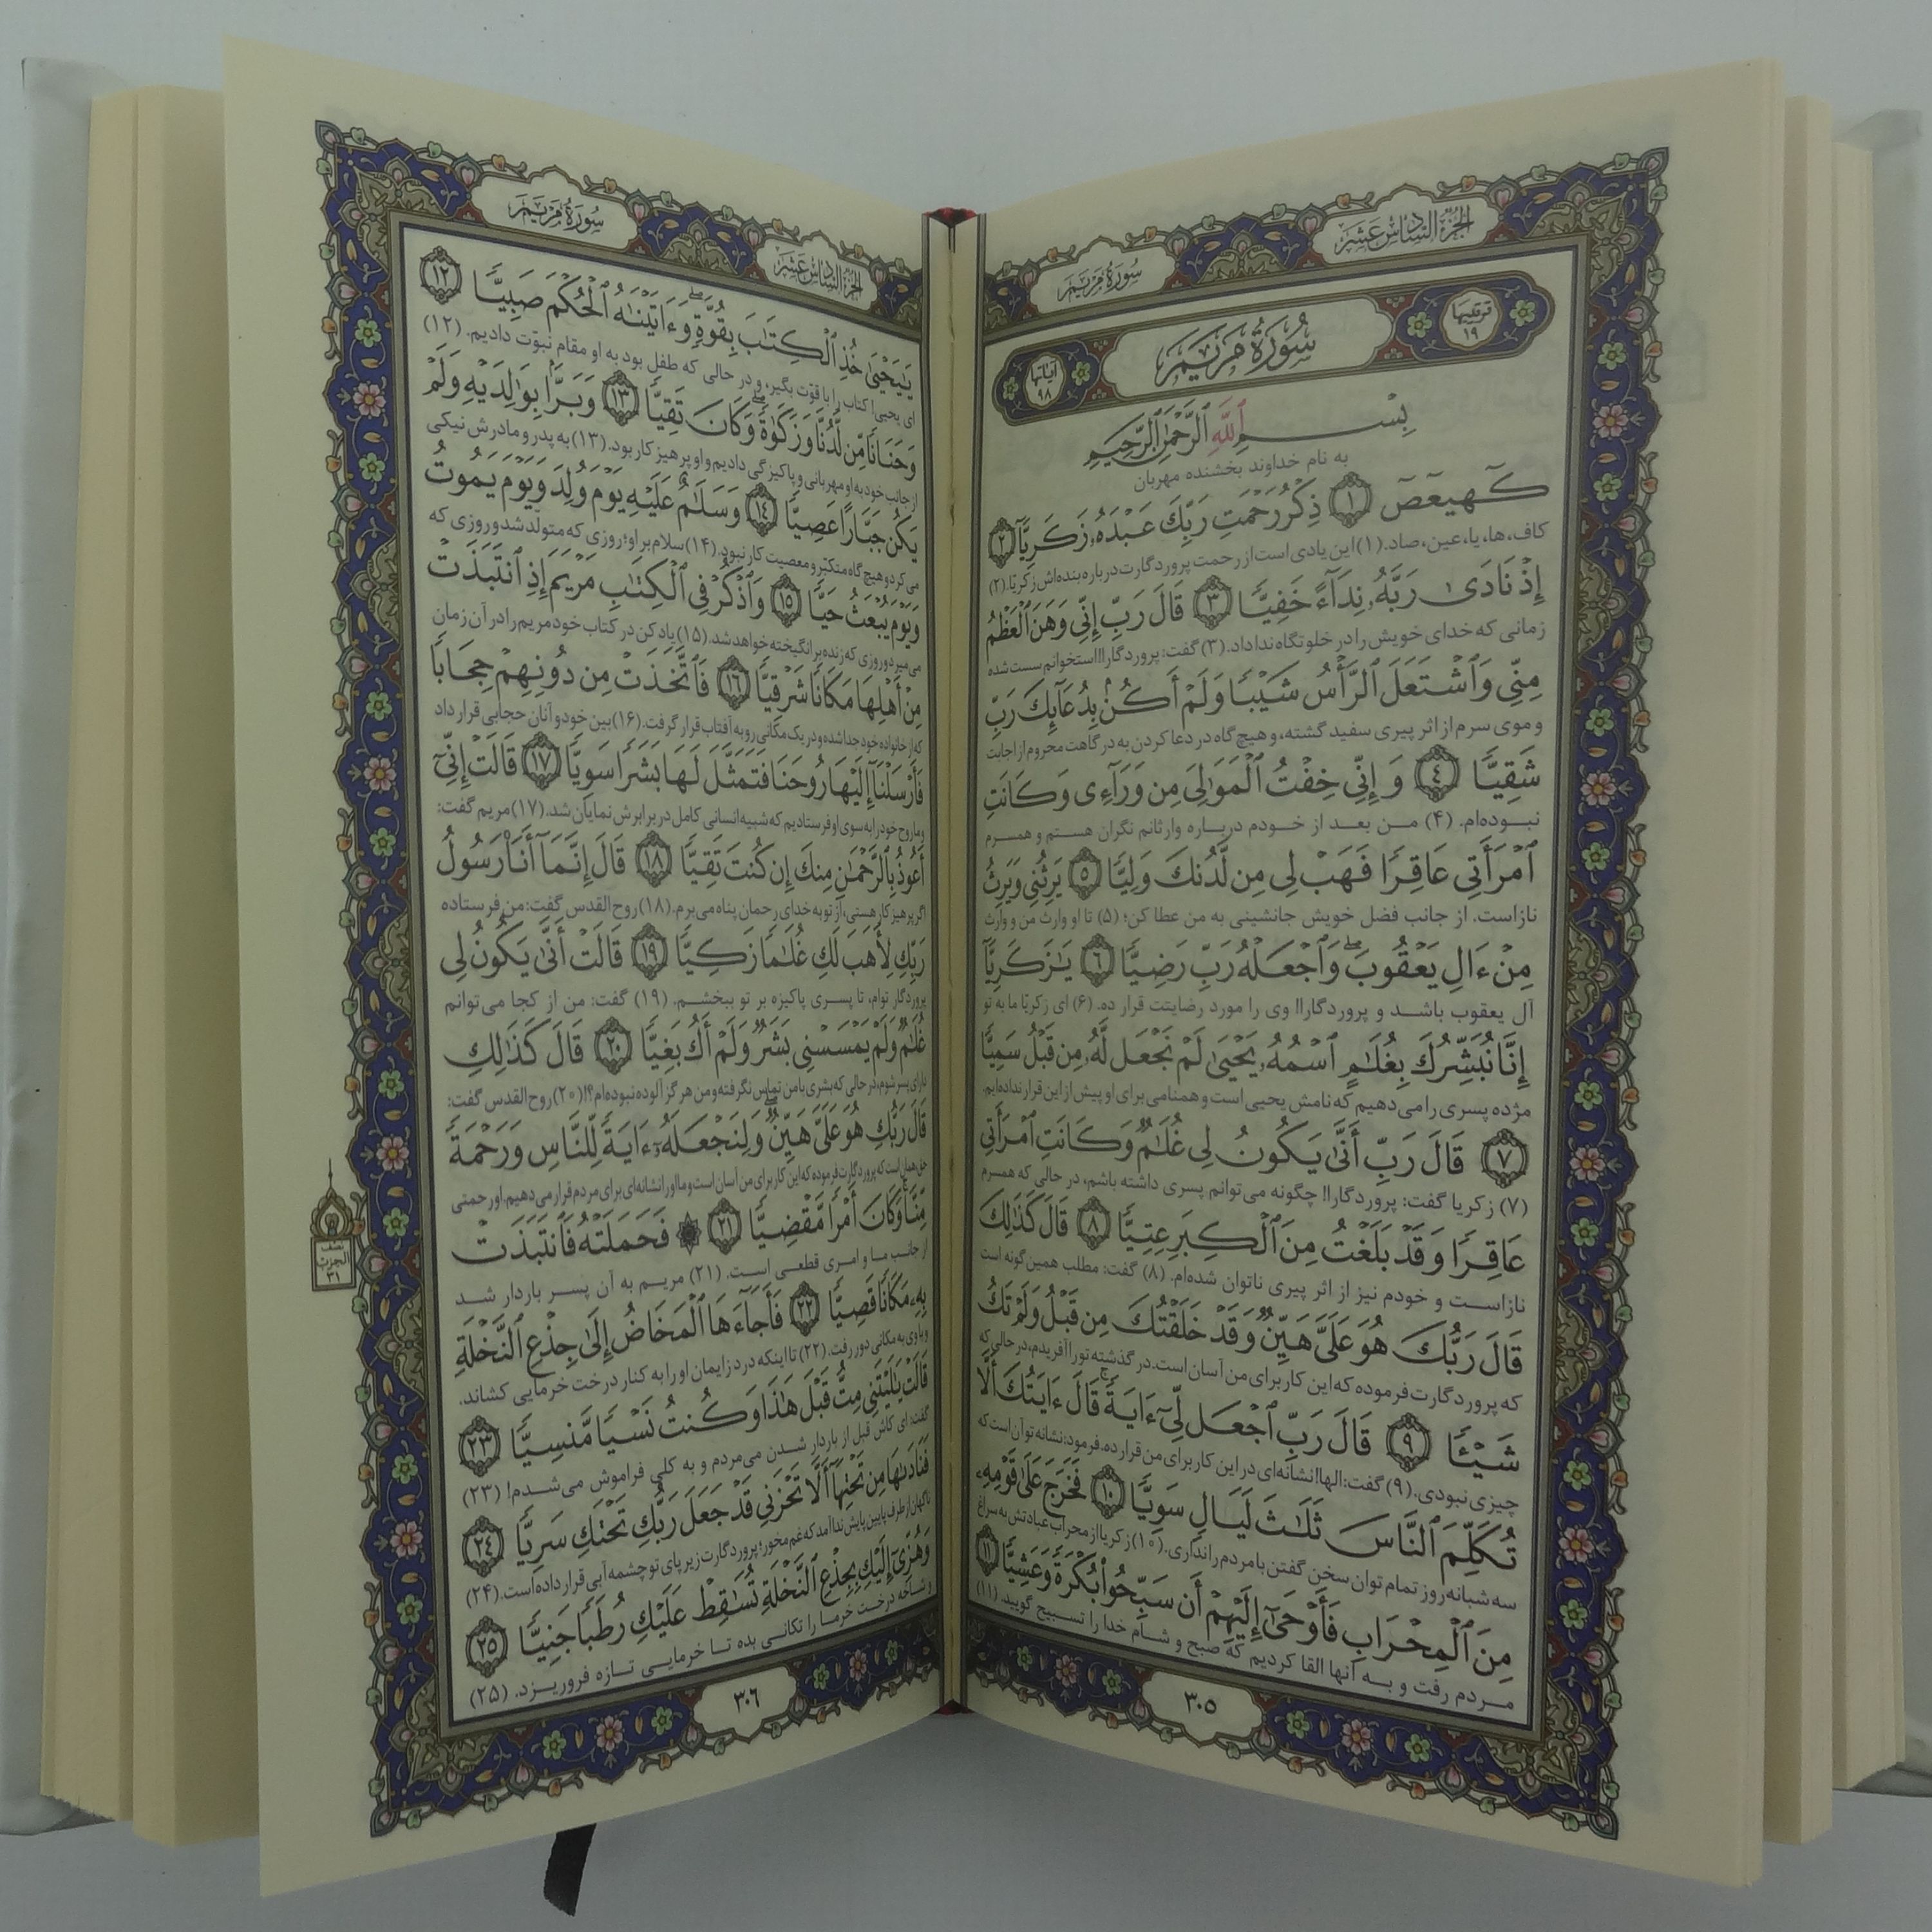 الجزء السادس عشر
سورة مريم
ترتيبها ١٩
سُورَةُ مَرْيَمَ
آياتها ٩٨
بِسْمِ ٱللَّهِ ٱلرَّحْمَٰنِ ٱلرَّحِيمِ
به نام خداوند بخشنده مهربان
كٓهيعٓصٓ ١ ذِكْرُ رَحْمَتِ رَبِّكَ عَبْدَهُۥ زَكَرِيَّآ ٢
کاف، ها، یا، عین، صاد. (۱) این یادی است از رحمت پروردگارت درباره بنده‌اش زکریّا. (۲)
إِذْ نَادَىٰ رَبَّهُۥ نِدَآءً خَفِيًّا ٣ قَالَ رَبِّ إِنِّي وَهَنَ ٱلْعَظْمُ
زمانی که خدای خویش را در خلوتگاه ندا داد. (۳) گفت: پروردگارا! استخوانم سست شده
مِنِّي وَٱشْتَعَلَ ٱلرَّأْسُ شَيْبًا وَلَمْ أَكُنۢ بِدُعَآئِكَ رَبِّ
و موی سرم از اثر پیری سفید گشته، و هیچ گاه در دعا کردن به درگاهت محروم از اجابت
شَقِيًّا ٤ وَإِنِّي خِفْتُ ٱلْمَوَٰلِيَ مِن وَرَآءِي وَكَانَتِ
نبوده‌ام. (۴) من بعد از خودم درباره وارثانم نگران هستم و همسرم
ٱمْرَأَتِي عَاقِرًا فَهَبْ لِي مِن لَّدُنكَ وَلِيًّا ٥ يَرِثُنِي وَيَرِثُ
نازاست. از جانب فضل خویش جانشینی به من عطا کن؛ (۵) تا او وارث من و وارث
مِنْ ءَالِ يَعْقُوبَۖ وَٱجْعَلْهُ رَبِّ رَضِيًّا ٦ يَٰزَكَرِيَّآ
آل یعقوب باشد و پروردگارا! وی را مورد رضایتت قرار ده. (۶) ای زکریّا ما به تو
إِنَّا نُبَشِّرُكَ بِغُلَٰمٍ ٱسْمُهُۥ يَحْيَىٰ لَمْ نَجْعَل لَّهُۥ مِن قَبْلُ سَمِيًّا
مژده پسری را می‌دهیم که نامش یحیی است و همنامی برای او پیش از این قرار نداده‌ایم.
٧ قَالَ رَبِّ أَنَّىٰ يَكُونُ لِي غُلَٰمٌ وَكَانَتِ ٱمْرَأَتِي
(۷) زکریا گفت: پروردگارا! چگونه می‌توانم پسری داشته باشم، در حالی که همسرم
عَاقِرًا وَقَدْ بَلَغْتُ مِنَ ٱلْكِبَرِ عِتِيًّا ٨ قَالَ كَذَٰلِكَ
نازاست و خودم نیز از اثر پیری ناتوان شده‌ام. (۸) گفت: مطلب همین گونه است
قَالَ رَبُّكَ هُوَ عَلَيَّ هَيِّنٌ وَقَدْ خَلَقْتُكَ مِن قَبْلُ وَلَمْ تَكُ
که پروردگارت فرموده که این کار برای من آسان است. در گذشته تو را آفریدم، در حالی که
شَيْـًٔا ٩ قَالَ رَبِّ ٱجْعَل لِّيٓ ءَايَةًۚ قَالَ ءَايَتُكَ أَلَّا
چیزی نبودی. (۹) گفت: الها! نشانه‌ای در این کار برای من قرار ده. فرمود: نشانه تو آن است که
تُكَلِّمَ ٱلنَّاسَ ثَلَٰثَ لَيَالٍ سَوِيًّا ١٠ فَخَرَجَ عَلَىٰ قَوْمِهِۦ
سه شبانه‌روز تمام توان سخن گفتن با مردم را نداری. (۱۰) زکریا از محراب عبادتش به سراغ
مِنَ ٱلْمِحْرَابِ فَأَوْحَىٰٓ إِلَيْهِمْ أَن سَبِّحُوا۟ بُكْرَةً وَعَشِيًّا ١١
مردم رفت و به آنها القا کردیم که صبح و شام خدا را تسبیح گویید. (۱۱)
٣٠٥
الجزء السادس عشر
سورة مريم
يَٰيَحْيَىٰ خُذِ ٱلْكِتَٰبَ بِقُوَّةٍۖ وَءَاتَيْنَٰهُ ٱلْحُكْمَ صَبِيًّا ١٢
ای یحیی! کتاب را با قوّت بگیر، و در حالی که طفل بود به او مقام نبوّت دادیم. (۱۲)
وَحَنَانًا مِّن لَّدُنَّا وَزَكَوٰةًۖ وَكَانَ تَقِيًّا ١٣ وَبَرًّۢا بِوَٰلِدَيْهِ وَلَمْ
از جانب خود به او مهربانی و پاکیزگی دادیم و او پرهیزکار بود. (۱۳) به پدر و مادرش نیکی
يَكُن جَبَّارًا عَصِيًّا ١٤ وَسَلَٰمٌ عَلَيْهِ يَوْمَ وُلِدَ وَيَوْمَ يَمُوتُ
می‌کرد و هیچ گاه متکبّر و معصیت کار نبود. (۱۴) سلام بر او؛ روزی که متولّد شد و روزی که
وَيَوْمَ يُبْعَثُ حَيًّا ١٥ وَٱذْكُرْ فِي ٱلْكِتَٰبِ مَرْيَمَ إِذِ ٱنتَبَذَتْ
می‌میرد و روزی که زنده برانگیخته خواهد شد. (۱۵) یاد کن در کتاب خود مریم را در آن زمان
مِنْ أَهْلِهَا مَكَانًا شَرْقِيًّا ١٦ فَٱتَّخَذَتْ مِن دُونِهِمْ حِجَابًا
که از خانواده خود جدا شده و در یک مکانی رو به آفتاب قرار گرفت. (۱۶) بین خود و آنان حجابی قرار داد
فَأَرْسَلْنَآ إِلَيْهَا رُوحَنَا فَتَمَثَّلَ لَهَا بَشَرًا سَوِيًّا ١٧ قَالَتْ إِنِّيٓ
و ما روح خود را به سوی او فرستادیم که شبیه انسانی کامل در برابرش نمایان شد. (۱۷) مریم گفت:
أَعُوذُ بِٱلرَّحْمَٰنِ مِنكَ إِن كُنتَ تَقِيًّا ١٨ قَالَ إِنَّمَآ أَنَا۠ رَسُولُ
اگر پرهیز کار هستی، از تو به خدای رحمان پناه می‌برم. (۱۸) روح القدس گفت: من فرستاده
رَبِّكِ لِأَهَبَ لَكِ غُلَٰمًا زَكِيًّا ١٩ قَالَتْ أَنَّىٰ يَكُونُ لِي
پروردگار توام، تا پسری پاکیزه بر تو ببخشم. (۱۹) گفت: من از کجا می‌توانم
غُلَٰمٌ وَلَمْ يَمْسَسْنِي بَشَرٌ وَلَمْ أَكُ بَغِيًّا ٢٠ قَالَ كَذَٰلِكِ
دارای پسر شوم، در حالی که بشری با من تماس نگرفته و من هرگز آلوده نبوده‌ام؟! (۲۰) روح القدس گفت:
قَالَ رَبُّكِ هُوَ عَلَيَّ هَيِّنٌۖ وَلِنَجْعَلَهُۥٓ ءَايَةً لِّلنَّاسِ وَرَحْمَةً
حق همان است که پروردگارت فرموده که این کار برای من آسان است و ما او را نشانه‌ای برای مردم قرار می‌دهیم. او رحمتی
مِّنَّاۚ وَكَانَ أَمْرًا مَّقْضِيًّا ٢١ ۞ فَحَمَلَتْهُ فَٱنتَبَذَتْ
از جانب ما و امری قطعی است. (۲۱) مریم به آن پسر باردار شد
بِهِۦ مَكَانًا قَصِيًّا ٢٢ فَأَجَآءَهَا ٱلْمَخَاضُ إِلَىٰ جِذْعِ ٱلنَّخْلَةِ
و با وی به مکانی دور رفت. (۲۲) تا اینکه درد زایمان او را به کنار درخت خرمایی کشاند.
قَالَتْ يَٰلَيْتَنِي مِتُّ قَبْلَ هَٰذَا وَكُنتُ نَسْيًا مَّنسِيًّا ٢٣
گفت: ای کاش قبل از باردار شدن می‌مردم و به کلی فراموش می‌شدم! (۲۳)
فَنَادَىٰهَا مِن تَحْتِهَآ أَلَّا تَحْزَنِي قَدْ جَعَلَ رَبُّكِ تَحْتَكِ سَرِيًّا ٢٤
ناگهان از طرف پایین پایش ندا آمد که غم مخور؛ پروردگارت زیر پای تو چشمه آبی قرار داده است. (۲۴)
وَهُزِّيٓ إِلَيْكِ بِجِذْعِ ٱلنَّخْلَةِ تُسَٰقِطْ عَلَيْكِ رُطَبًا جَنِيًّا ٢٥
و شاخه درخت خرما را تکانی بده تا خرمایی تازه فروریزد. (۲۵)
نصف الحزب ٣١
٣٠٦